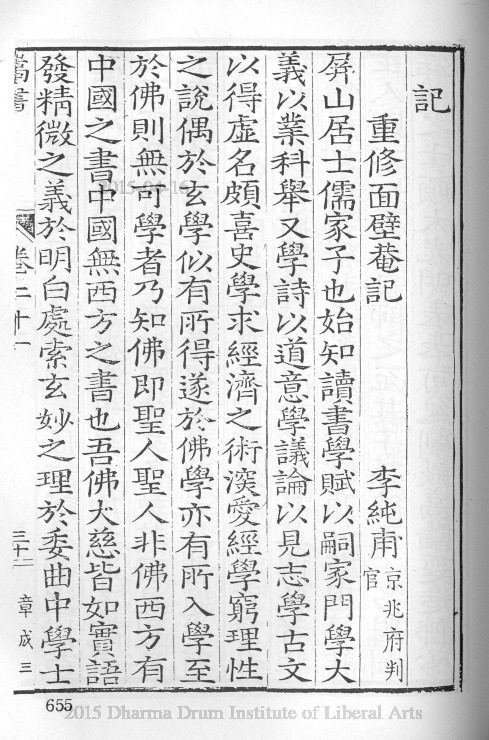 記
重修面壁菴記
李純甫 京兆府判官
屏山居士儒家子也始知讀書學賦以嗣家門學大
義以業科舉又學詩以道意學議論以見志學古文
以得虛名頗喜史學求經濟之術深愛經學窮理性
之說偶於玄學似有所得遂於佛學亦有所入學至
於佛則無可學者乃知佛即聖人聖人非佛西方有
中國之書中國無西方之書也吾佛大慈皆如實語
發精微之義於明白處索玄妙之理於委曲中學士
卷二十一
三十二 章成三
655
2015 Dharma Drum Institute of Liberal Arts